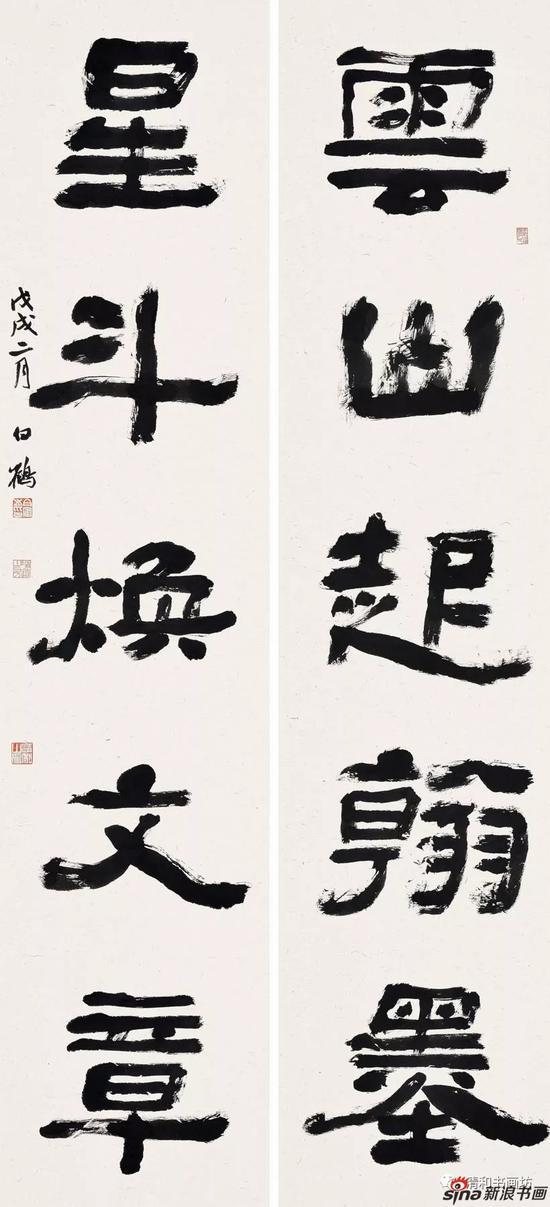 雲山起翰墨
星斗煥文章
戊戌二月 白鶴
清和书画坊
sina新浪书画